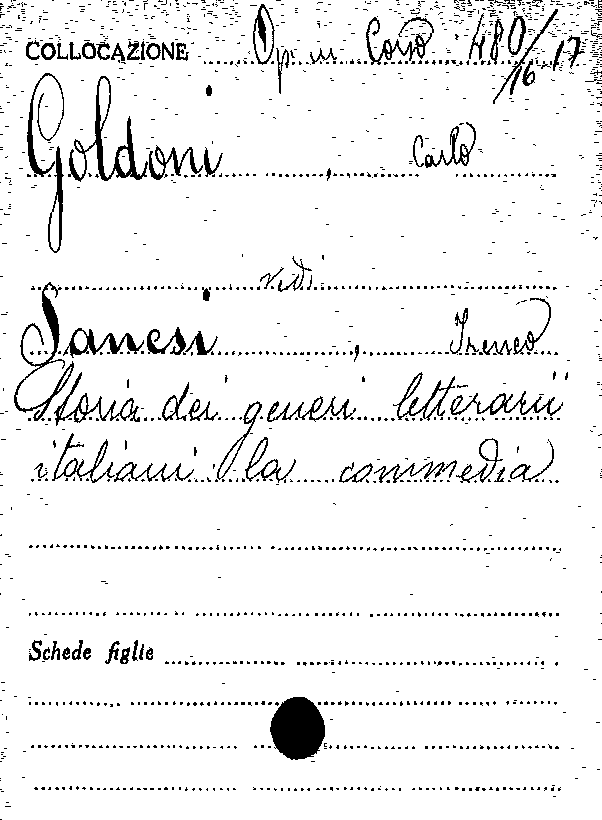 COLLOCAZIONE Op. in Corso 480/16-17
Goldoni, Carlo
vedi
Sanesi, Ireneo
Storia dei generi letterarii
italiani : la commedia
Schede figlie